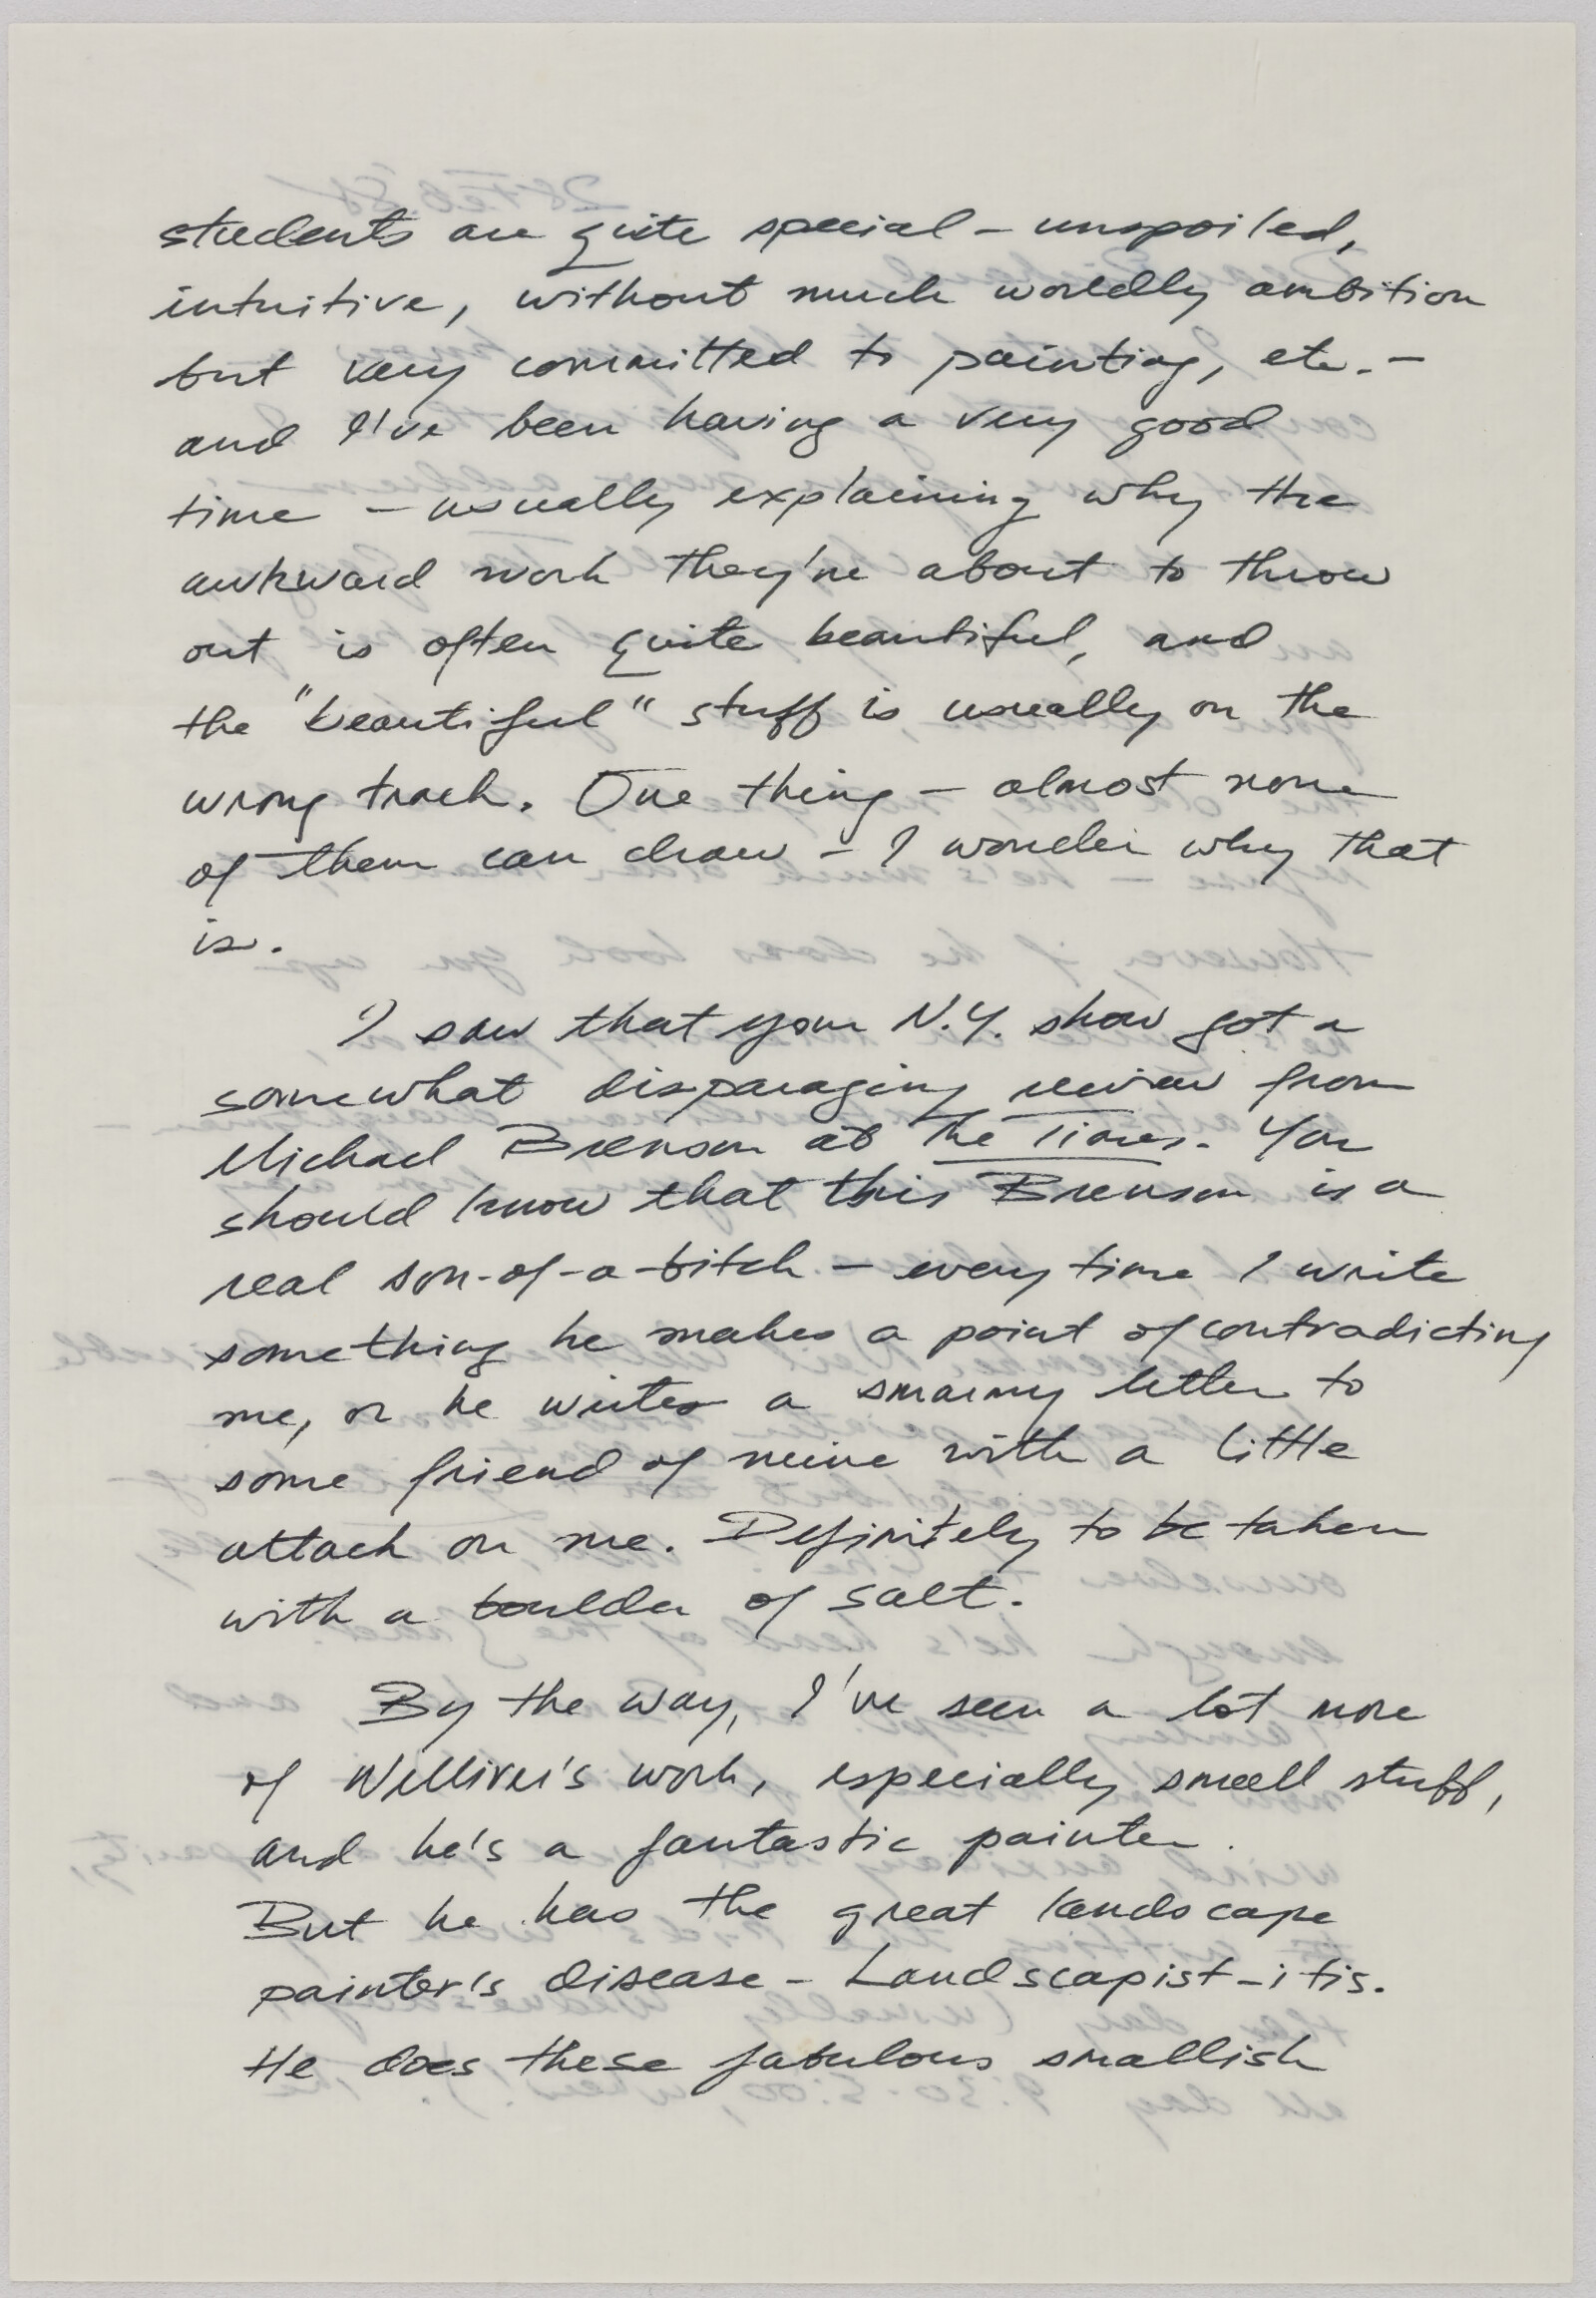 students are quite special – unspoiled,
intuitive, without much worldly ambition
but very committed to painting, etc. –
and I've been having a very good
time – usually explaining why the
awkward work they're about to throw
out is often quite beautiful, and
the "beautiful" stuff is usually on the
wrong track. One thing – almost none
of them can draw – I wonder why that
is.
I saw that your N.Y. show got a
somewhat disparaging review from
Michael Brenson at The Times. You
should know that this Brenson is a
real son-of-a-bitch – every time I write
something he makes a point of contradicting
me, or he writes a smarmy letter to
some friend of mine with a little
attack on me. Definitely to be taken
with a boulder of salt.
By the way, I've seen a lot more
of Welliver's work, especially small stuff,
and he's a fantastic painter.
But he has the great landscape
painter's disease – Landscapist-itis.
He does these fabulous smallish